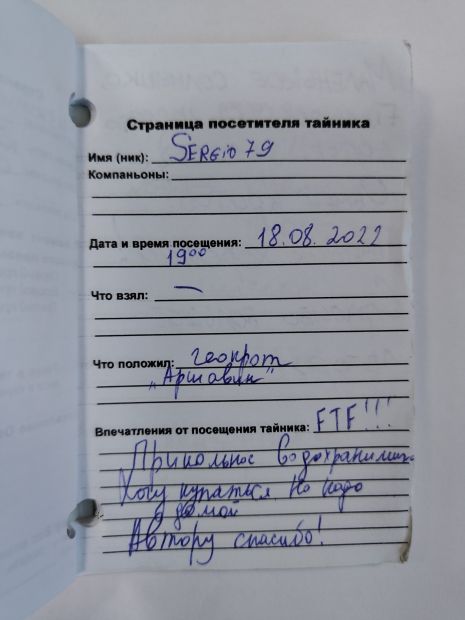 Страница посетителя тайника
Имя (ник): SERGIO 79
Компаньоны:
Дата и время посещения: 18.08.2022
19⁰⁰
Что взял: —
Что положил: геокрот
„Аршавин"
Впечатления от посещения тайника: FTF!!!
Прикольное Водохранилище
Хочу купаться. Но надо
домой
Автору спасибо!